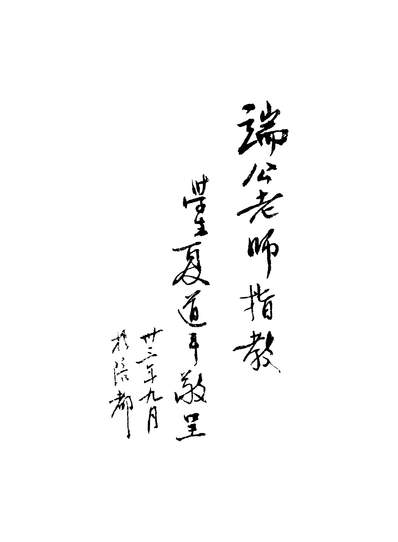 端公老師指教
學生夏道平敬呈
卅三年九月
於陪都